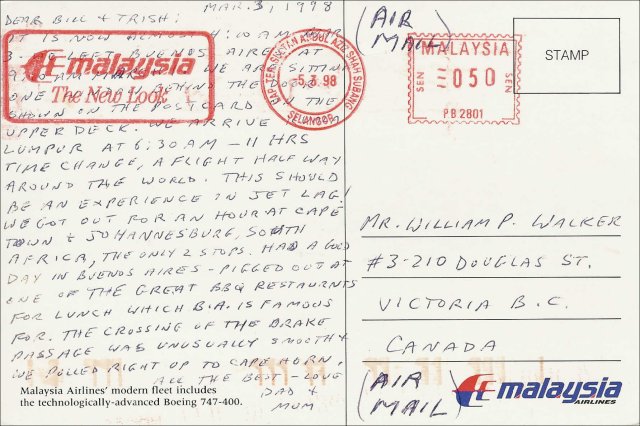 MAR. 3, 1998
DEAR BILL & TRISH:
IT IS NOW ALMOST 4:10 AM MAR
3. LEFT BUENOS AIRES AT
WE ARE SITTING
ONE ROW BEHIND THE DOOR
SHOWN ON THE POSTCARD ON THE
UPPER DECK. WE ARRIVE
LUMPUR AT 6:30 AM - 11 HRS
TIME CHANGE, A FLIGHT HALF WAY
AROUND THE WORLD. THIS SHOULD
BE AN EXPERIENCE IN JET LAG!
WE GOT OUT FOR AN HOUR AT CAPE
TOWN & JOHANNESBURG, SOUTH
AFRICA, THE ONLY 2 STOPS. HAD A GOOD
DAY IN BUENOS AIRES - PIGGED OUT AT
ONE OF THE GREAT BBQ RESTAURNTS
FOR LUNCH WHICH B.A. IS FAMOUS
FOR. THE CROSSING OF THE DRAKE
PASSAGE WAS UNUSUALLY SMOOTH &
WE PULLED RIGHT UP TO CAPE HORN.
ALL THE BEST - LOVE
DAD &
MUM
malaysia
The New Look
TER SULTAN ABDUL AZIZ SHAH SUBANG
-5.3.98
SELANGOR
Malaysia Airlines' modern fleet includes
the technologically-advanced Boeing 747-400.
(AIR
MAIL)
MALAYSIA
SEN 050 SEN
PB 2801
STAMP
MR. WILLIAM P. WALKER
#3-210 DOUGLAS ST.
VICTORIA B.C.
CANADA
(AIR
MAIL)
malaysia
AIRLINES